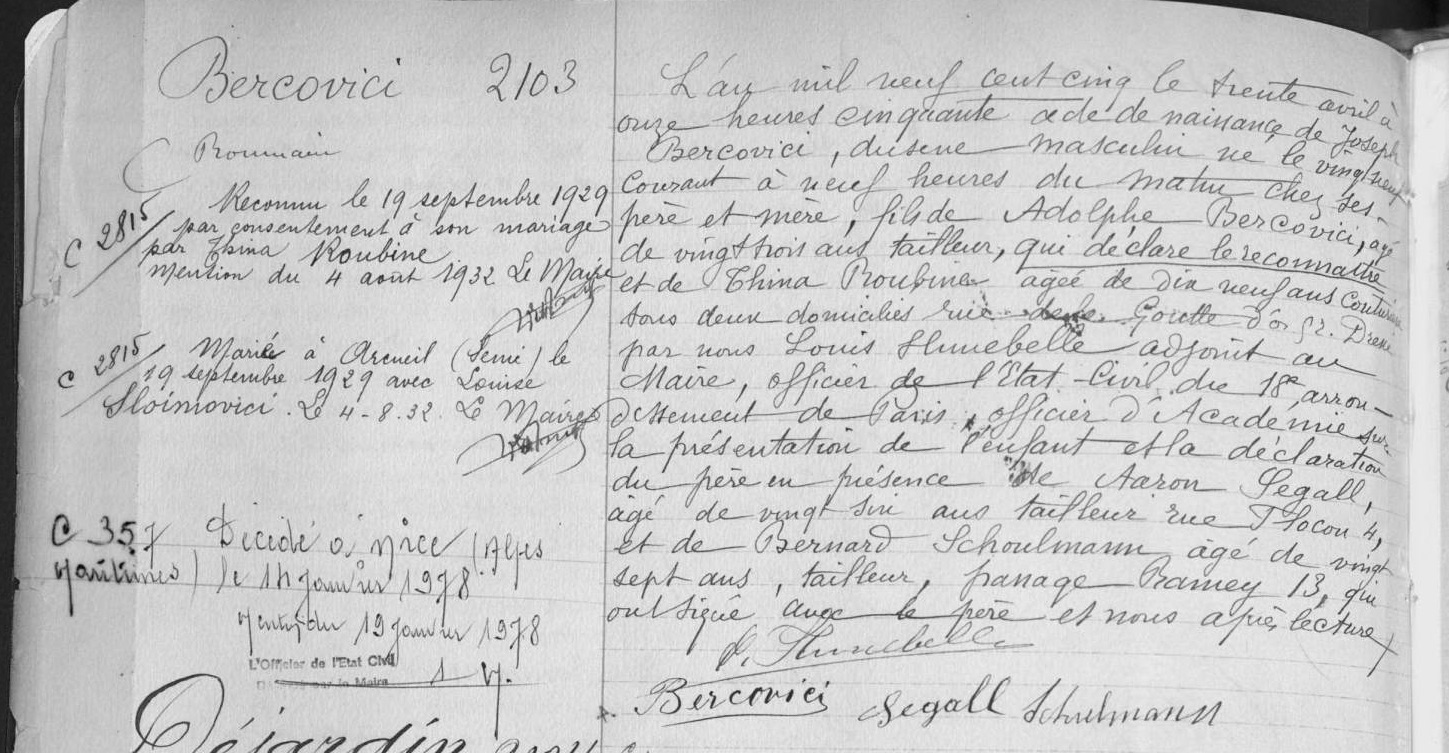 Bercovici 2103
Roumain
C 2815
Reconnu le 19 septembre 1929
par consentement à son mariage
par Thina Roubine
mention du 4 août 1932 Le Maire
C 2815
Marié à Arcueil (Seine) le
19 septembre 1929 avec Louise
Sloïmovici. Le 4-8.32. Le Maire
C 357 Décédé à Nice (Alpes
Maritimes) le 14 janvier 1978
19 janvier 1978
L'Officier de l'Etat Civil
L'an mil neuf cent cinq le trente avril à
onze heures cinquante acte de naissance de Joseph
Bercovici, du sexe masculin né le vingt neuf
courant à neuf heures du matin chez ses
père et mère, fils de Adolphe Bercovici, agé
de vingt trois ans tailleur, qui déclare le reconnaître
et de Thina Roubine agée de dix neuf ans couturière
tous deux domiciliés rue Goutte d'or 52. Dressé
par nous Louis Hunebelle adjoint au
Maire, officier de l'Etat-Civil du 18e arron-
dissement de Paris, officier d'Académie sur
la présentation de l'enfant et la déclaration
du père en présence de Aaron Segall,
âgé de vingt six ans tailleur rue Flocon 4,
et de Bernard Schoulmann âgé de vingt
sept ans, tailleur, passage Ramey 13, qui
ont signé avec le père et nous après lecture
Hunebelle
Bercovici Segall Schulmann
Déjardin